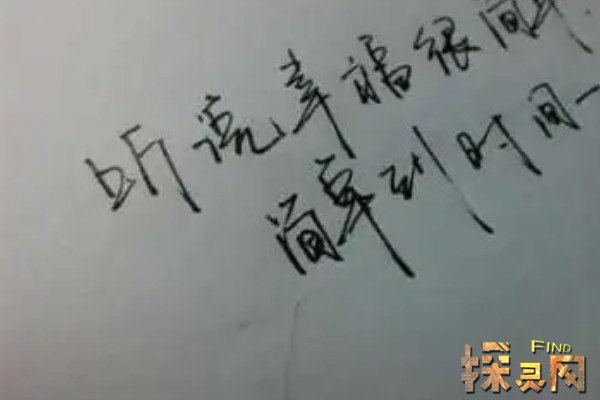 听说幸福很简单
简单到时间一
FIND
探灵网